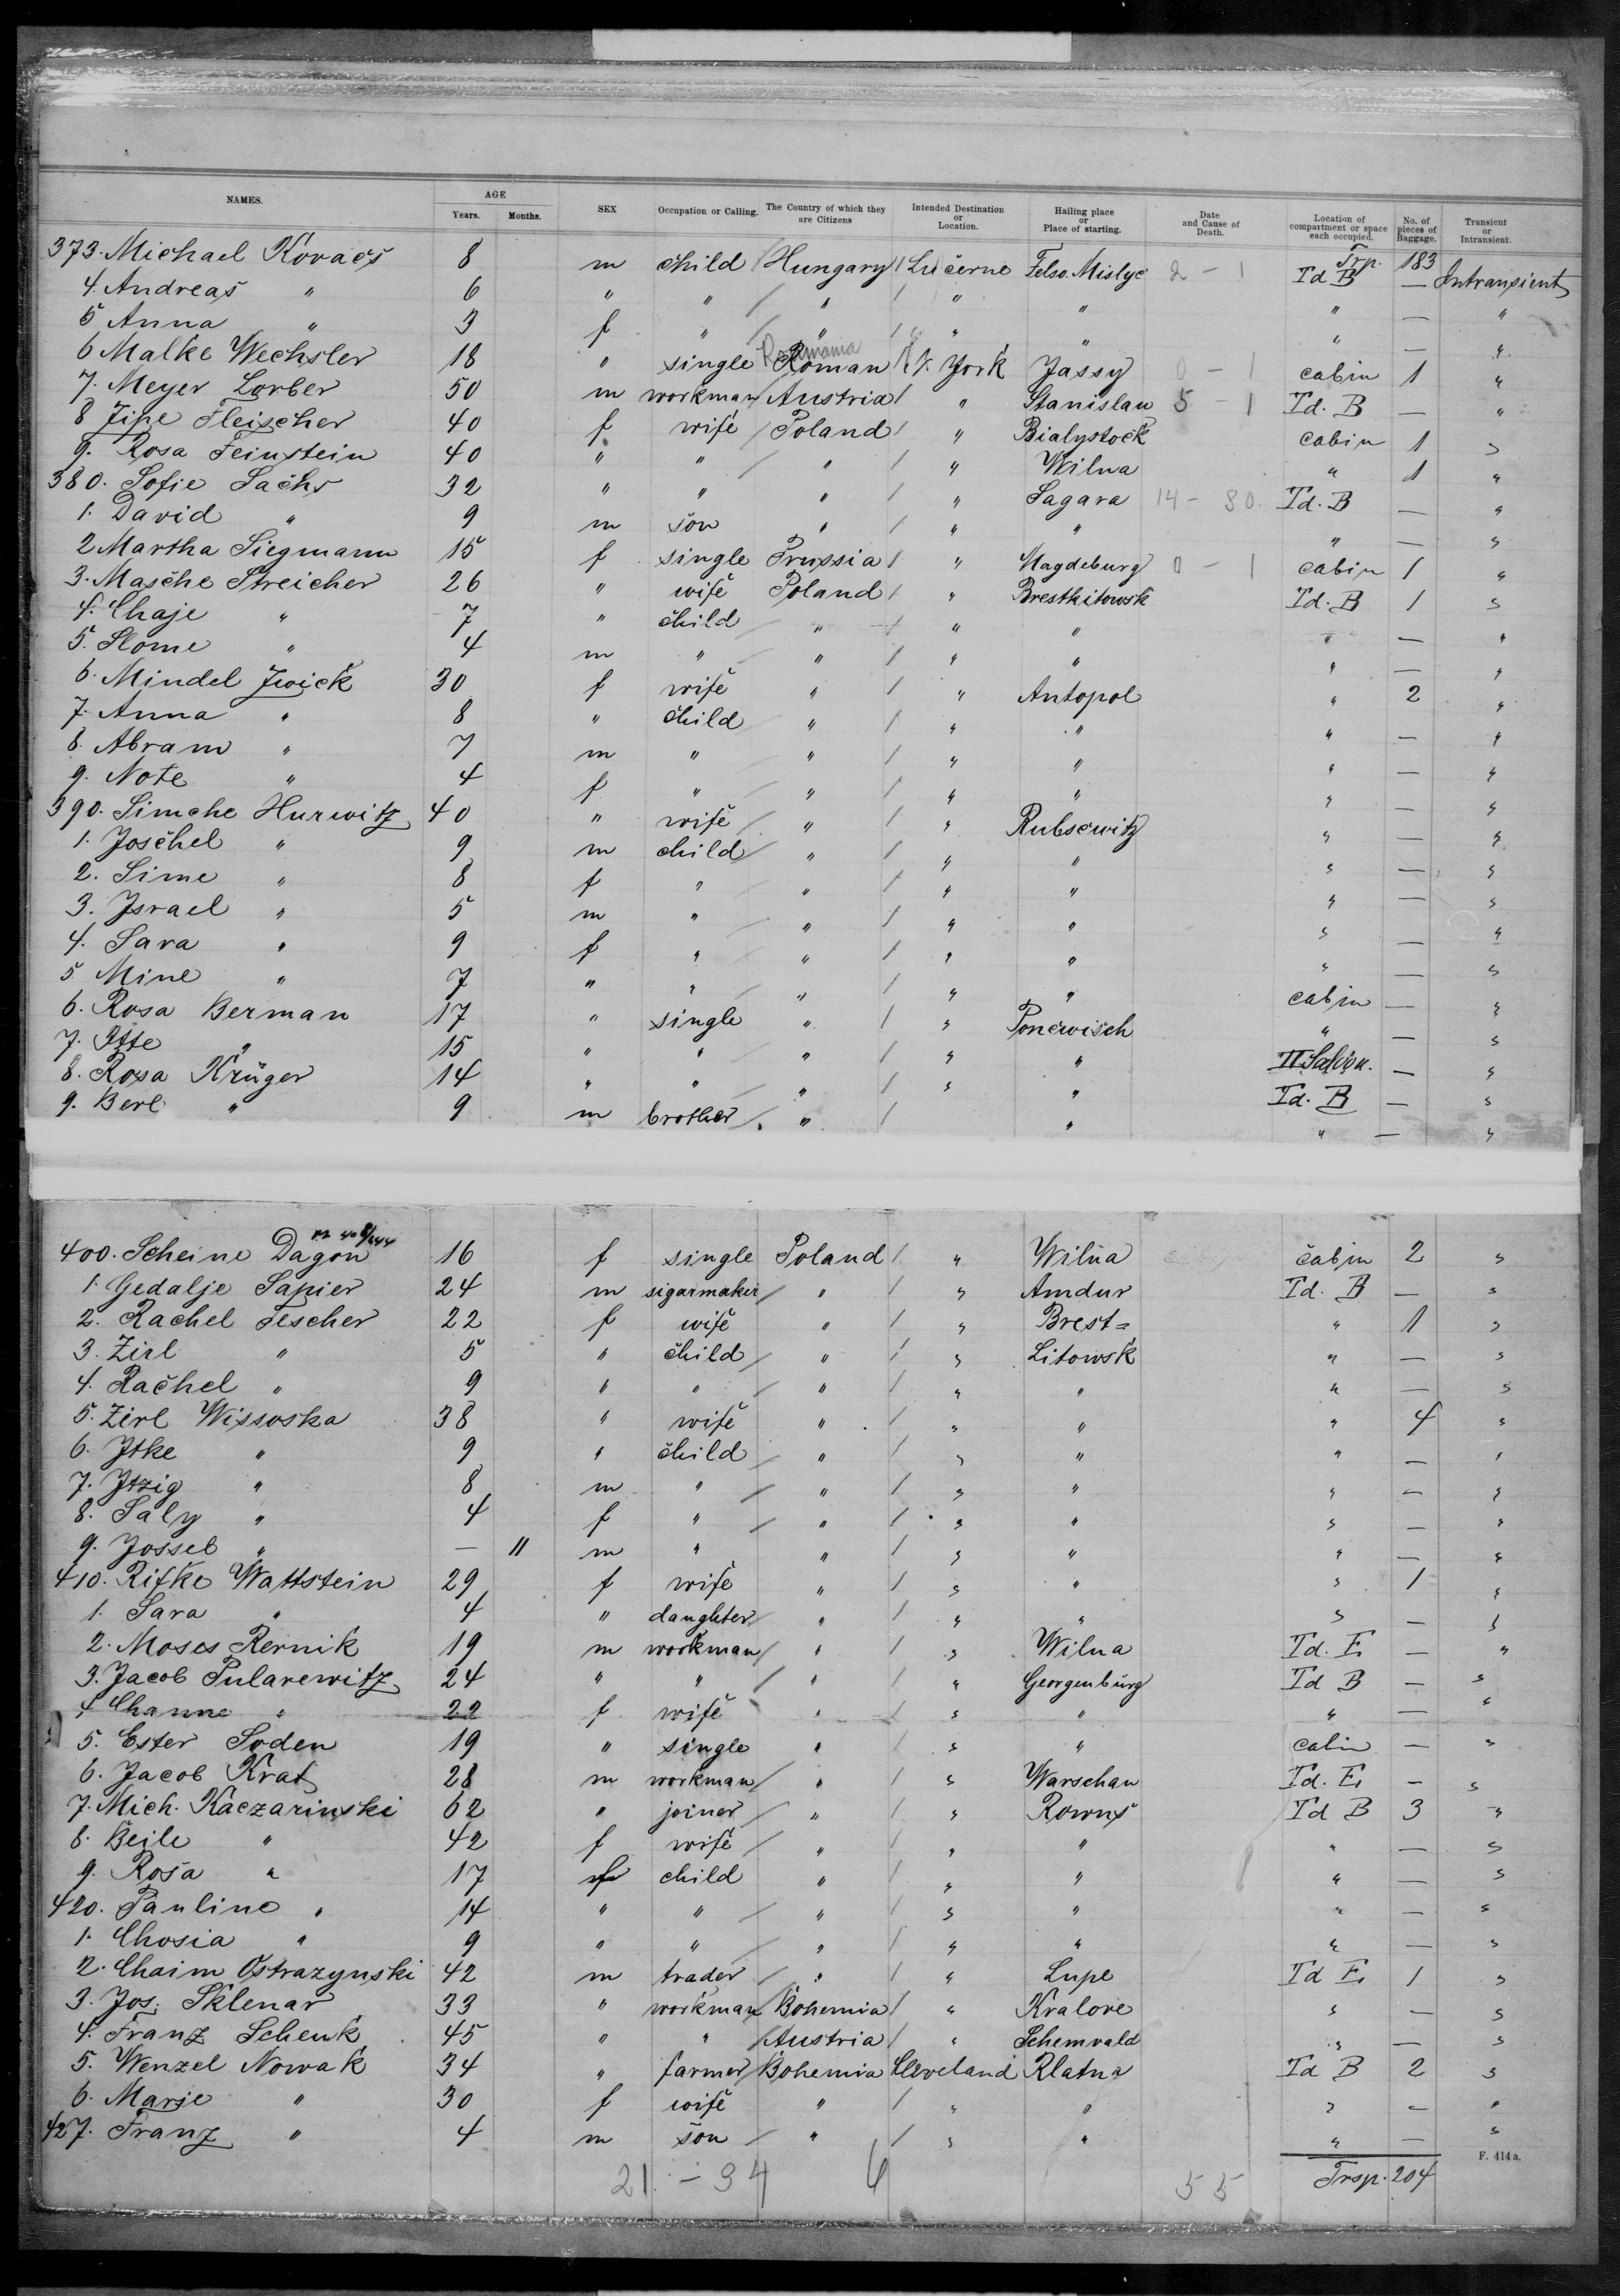 NAMES. AGE Years. Months. SEX Occupation or Calling. The Country of which they are Citizens Intended Destination or Location. Hailing place or Place of starting. Date and Cause of Death. Location of compartment or space each occupied. No. of pieces of Baggage. Transient or Intransient.
Trp. 183
373. Michael Kovacs 8 m child Hungary / Lučerne Felso. Mislye 2 - 1 Td B — Intransient
4. Andreas " 6 " " / " / " " " — "
5 Anna " 3 f " / " / " " " — "
6 Malke Wechsler 18 " single Roman Roumania / N. York Jassy 0 - 1 cabin 1 "
7. Meyer Lorber 50 m workman Austria / " Stanislau 5 - 1 Td. B — "
8 Zipe Fleischer 40 f wife Poland / " Bialystock cabin 1 "
9. Rosa Feinstein 40 " " / " / " Wilna " 1 "
380. Sofie Sachs 32 " " " / " Sagara 14 - 80. Td. B — "
1. David " 9 m son " / " " " — "
2 Martha Siegmann 15 f single Prussia / " Magdeburg 0 - 1 cabin 1 "
3. Masche Streicher 26 " wife Poland / " Brestkitowsk Td. B 1 "
4. Chaje " 7 " child " / " " " — "
5. Slome " 4 m " " / " " " — "
6. Mindel Zwick 30 f wife " / " Antopol " 2 "
7. Anna " 8 " child " / " " " — "
8. Abram " 7 m " " / " " " — "
9. Note " 4 f " " / " " " — "
390. Simche Hurwitz 40 " wife " / " Rubsewitz " — "
1. Joschel " 9 m child " / " " " — "
2. Sime " 8 f " " / " " " — "
3. Israel " 5 m " " / " " " — "
4. Sara " 9 f " " / " " " — "
5 Mine " 7 " " " / " " " — "
6. Rosa Berman 17 " single " / " Ponewisch cabin — "
7. Itte " 15 " " " / " " " — "
8. Rosa Krüger 14 " " " / " " II Salon. — "
9. Berl " 9 m brother " / " Td. B — "
400. Scheine Dagon 16 f single Poland / " Wilna cabin 2 "
1. Gedalje Sapier 24 m sigarmaker / " " Amdur Td. B — "
2. Rachel Fescher 22 f wife " / " Brest= " 1 "
3. Zirl " 5 " child / " / " Litowsk " — "
4. Rachel " 9 " " / " / " " " — "
5. Zirl Wissoska 38 " wife " / " " " 4 "
6. Itke " 9 " child / " / " " " — "
7. Itzig " 8 m " / " / " " " — "
8. Saly " 4 f " / " / " " " — "
9. Jossel " — 11 m " " / " " " — "
410. Rifke Wattstein 29 f wife " / " " " 1 "
1. Sara " 4 " daughter / " / " " " — "
2. Moses Rernik 19 m workman / " / " Wilna Td. E. — "
3. Jacob Pularewitz 24 " " / " / " Georgenburg Td B — "
4 Channe " 22 f wife " / " " " — "
5. Ester Soden 19 " single " / " " cabin — "
6. Jacob Krat 28 m workman / " / " Warschau Td. E. — "
7. Mich. Kaczarinski 62 " joiner / " / " Rowns Td B 3 "
8. Beile " 42 f wife / " / " " " — "
9. Rosa " 17 f child " / " " " — "
420. Pauline " 14 " " / " / " " " — "
1. Chosia " 9 " " / " / " " " — "
2. Chaim Ostrazynski 42 m trader / " / " Lupe Td E. 1 "
3. Jos. Sklenar 33 " workman Bohemia / " Kralove " — "
4. Franz Schenk 45 " " / Austria / " Schemvald " — "
5. Wenzel Nowak 34 " farmer Bohemia Cleveland Klatna Td B 2 "
6. Marje " 30 f wife " / " " " — "
427. Franz " 4 m son / " / " " " — "
F. 414a.
21 - 34 55 Trsp. 204